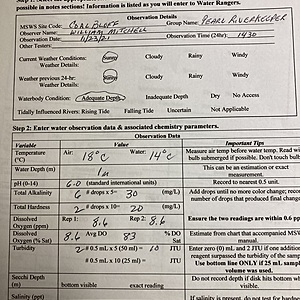 possible in notes section! Information is listed as you will enter to Water Rangers.
Observation Details
MSWS Site Code: COAL BLUFF Group Name: PEARL RIVERKEEPER
Observer Name: WILLIAM MITCHELL
Observation Date: 11/23/21 Observation Time (24hr): 1430
Other Testers:
Current Weather Conditions: Sunny Cloudy Rainy Windy
Weather Details:
Weather previous 24-hr: Sunny Cloudy Rainy Windy
Weather Details:
Waterbody Condition: Adequate Depth Inadequate Depth Dry No Access
Tidally Influenced Rivers: Rising Tide Falling Tide Uncertain Not Applicable
Step 2: Enter water observation data & associated chemistry parameters.
Observation Data
Variable Value Important Tips
Temperature (°C) Air: 18°C Water: 14°C Measure air temp before water temp. Read wi
bulb submerged if possible. Don't touch bulb
Water Depth (m) This can be an estimation or exact
measurement.
pH (0-14) 6.0 (standard international units) Record to nearest 0.5 unit.
Total Alkalinity 6 # drops x 5= 30 (mg/L) Add drops until no more color change; reco
Total Hardness 2 # drops x 10= 20 (mg/L) number of drops that produced final change
Dissolved Oxygen (ppm) Rep 1: 8.6 Rep 2: 8.6 Ensure the two readings are within 0.6 pp
Dissolved Oxygen (% Sat) 8.6 Avg DO 83 % DO Sat Estimate from chart that accompanied
manual.
Turbidity 2 # 0.5 mL x 5 (50 ml) = 10 JTU Enter zero (0) mL and 2 JTU if one addition
# 0.5 mL x 10 (25 ml) = JTU reagent surpassed the turbidity of the samp
Use bottom line ONLY if 25 mL sampl
volume was used.
Secchi Depth (m) bottom visible exact reading Do not record depth if disk hits bottom wh
visible.
Salinity (ppt) If salinity is present, do not test for hardne